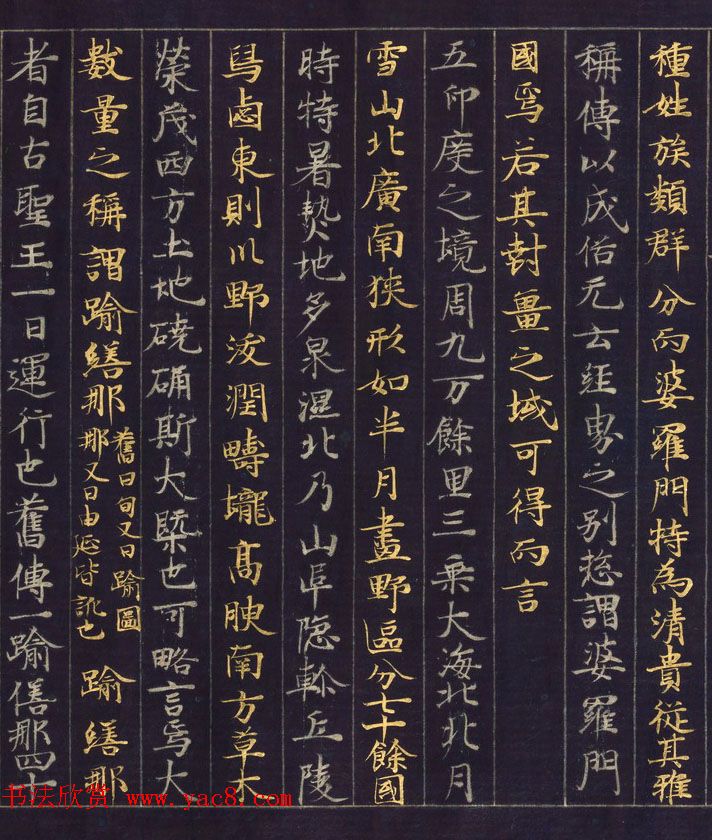 種姓族類群分而婆羅門特為清貴從其雅
稱傳以成俗无云経界之別惣謂婆羅門
國焉若其封畺之域可得而言
五印度之境周九万餘里三乗大海北北月
雪山北廣南狹形如半月畫野區分七十餘國
時特暑熱地多泉濕北乃山阜隠軫丘陵
舄鹵東則川野沃潤疇壠髙腴南方草木
榮茂西方土地磽确斯大槩也可略言焉大
數量之稱謂踰繕那
舊曰旬又曰踰圖
那又曰由延皆訛也
踰繕那
者自古聖王一日運行也舊傳一踰繕那四十
书法欣赏 www.yac8.com